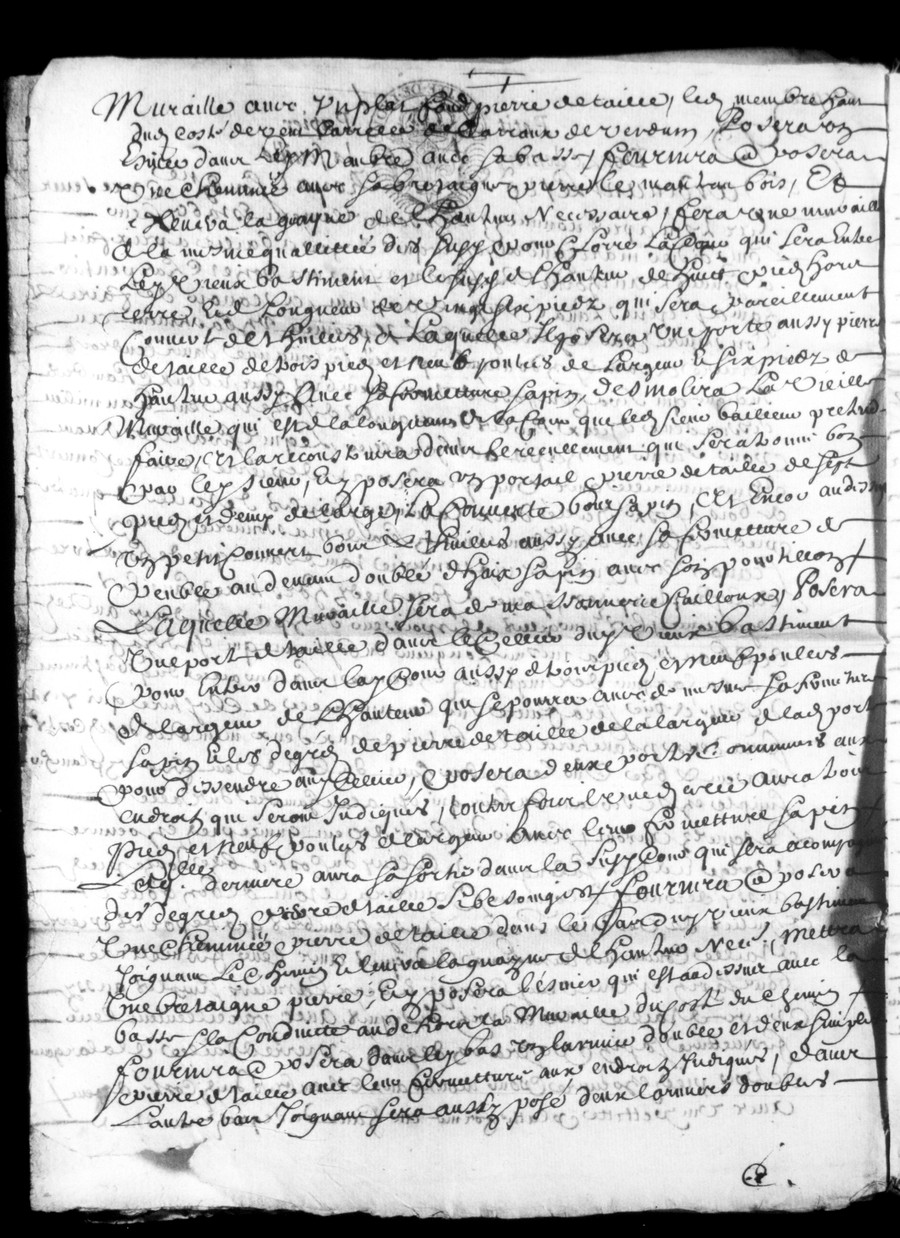 Muraille avec un plat fond pierre de taille, led. membre haut
dud. costé de vent carrelé de carraux de verdun, posera un
esvier dans led. membre avec sa basse, fournira et posera
une cheminée avec sa bretaigne pierre le manteau bois, et
eslevera la guayne de l'hauteur necessaire, fera une muraille
de la mesme quallitée des susd. pour clorre la cour qui sera entre
led. vieux bastiment et le susd. de l'hauteur de huict pieds hors
terre et de longueur de vingt six piedz qui sera pareillement
couverte de thuiles, et laquelle il posera une porte aussy pierre
de taille de trois pieds et neuf poulces de largeur et six piedz de
hauteur aussy avec sa fermetture sapin, desmolira la vieille
muraille qui est de la longueur de la cour que led. sieur bailleur pretend
faire, et la reconstruira dernier le reculement qui sera donné
par led. sieur, et y posera un portail pierre de taille de sept
pieds et demy de large, la couverte bois sapin, et encor au dessus
un petit couvert bois et thuiles aussy avec sa fermetture de
peuble au dedans doublé d'haix sapin avec son
Laquelle muraille sera de massonnerie cailloux, posera
une porte de taille dans le cellier dud. vieux bastiment
pour entrer dans lad. cour aussy de trois pieds et neuf poulces
de largeur de l'hauteur qui se pourra avec de mesme sa fermetture
sapin et les degrés de pierre de taille de la largeur de lad. porte
pour dessendre aud. cellier, posera deux portes communes aux
endroits qui seront indiqués, aura trois
pieds et neuf poulces de largeur avec leur fermetture sapin
derniere aura sa sortie dans la susd. cour qui sera acompagnée
des degrés pierre de taille si besoing est, fournira et posera
une cheminée pierre de taille dans le dud. vieux bastiment
joignant le chemin eslevera la guayne de l'hauteur necess. mettra
une bretaigne pierre, et y posera l'esvier qui est au dessus avec la
basse et la conduitte au dehors la muraille du costé du chemin
fournira et posera dans led. bas un larmier double et deux simples
pierre de taille avec leur fermetture aux endroits indiqués, et dans
l'autre bas joignant sera aussy posé deux larmiers doubles